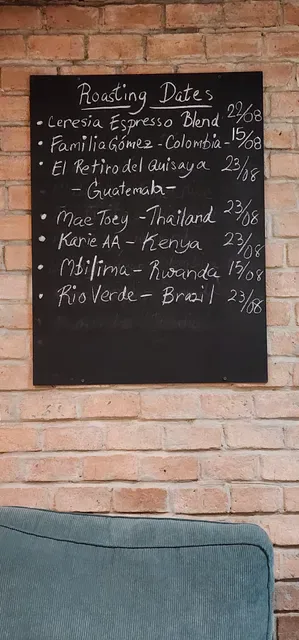 Roasting Dates
• Ceresia Espresso Blend 22/08
• Familia Gómez - Colombia - 15/08
• El Retiro del Quisaya 23/08
- Guatemala -
• Mae Toey - Thailand 23/08
• Karie AA - Kenya 23/08
• Mbilima - Rwanda 15/08
• Rio Verde - Brazil 23/08